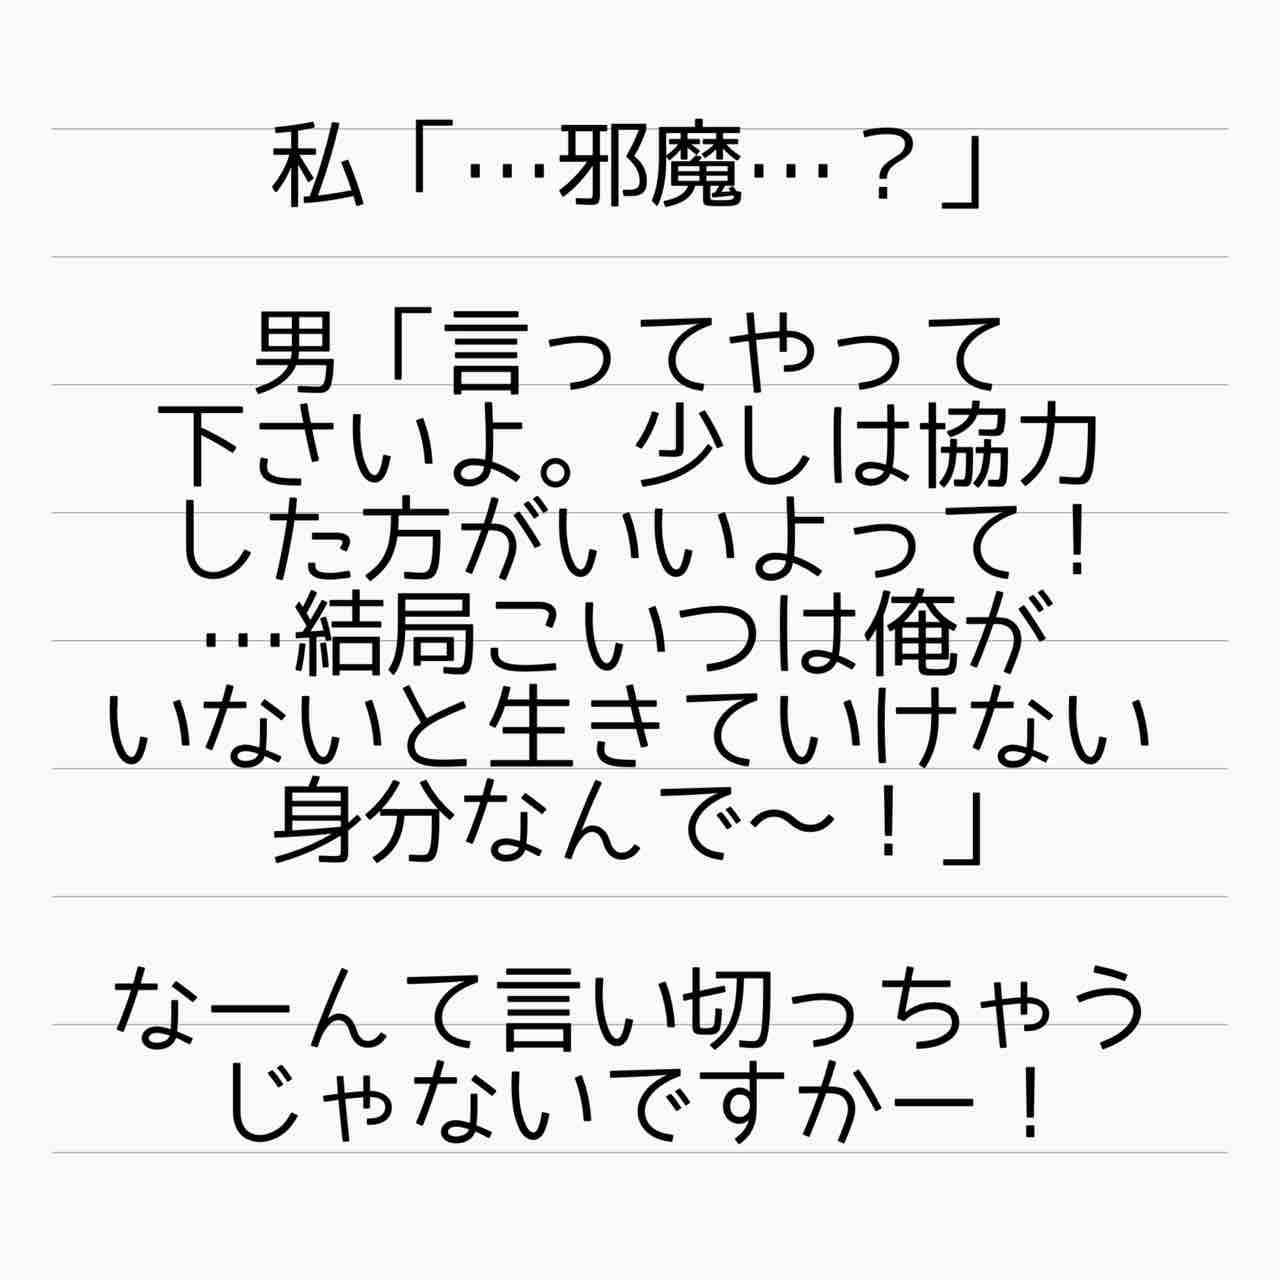 私「…邪魔…？」
男「言ってやって
下さいよ。少しは協力
した方がいいよって！
…結局こいつは俺が
いないと生きていけない
身分なんで〜！」
なーんて言い切っちゃう
じゃないですかー！